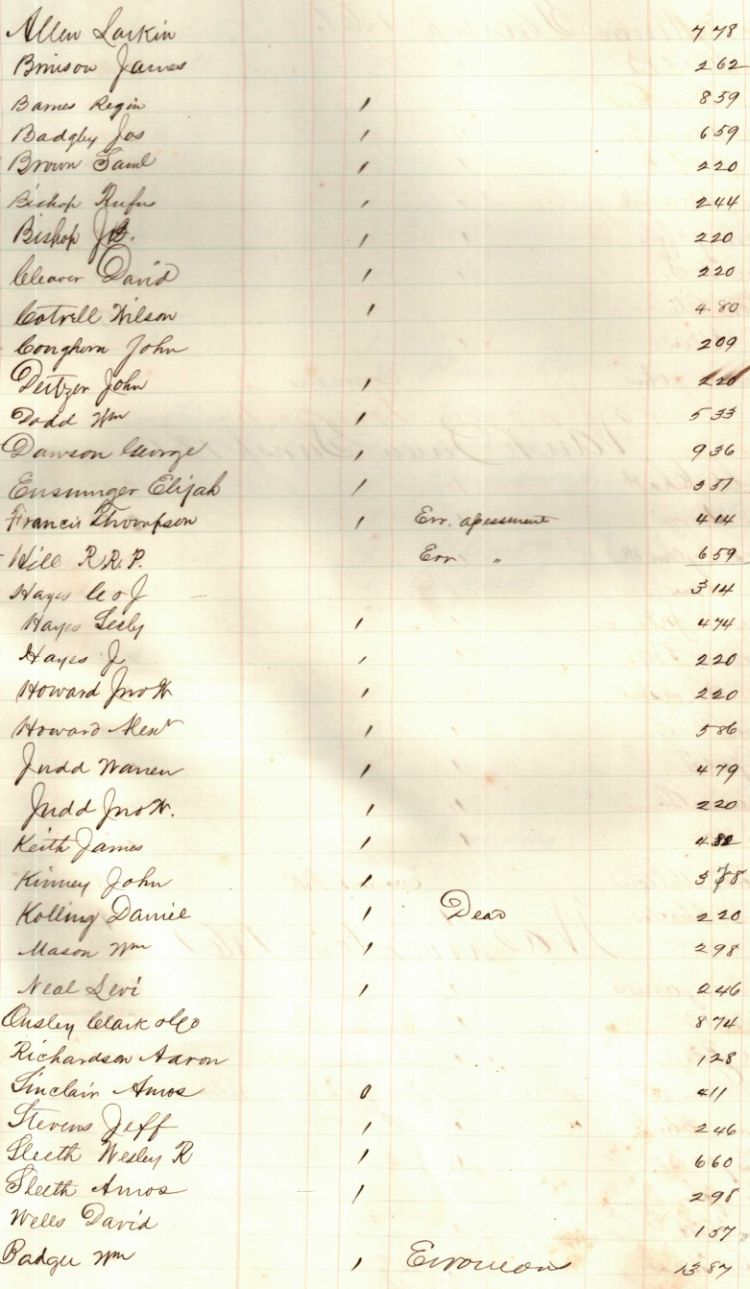 Allen Larkin 7 78
Brinson James 2 62
Barnes Regin 1 8 59
Badgley Jos 1 6 59
Brown Saml 1 2 20
Bishop Rufus 1 2 44
Bishop J.B. 1 2 20
Cleaver David 1 2 20
Cotrell Wilson 1 4 80
Conghorn John 2 09
Deitzer John 1 2 20
Dodd Wm 1 5 33
Dawson George 1 9 36
Ensminger Elijah 1
Francis Thompson 1 Err. assessment 4 14
Hill R.R.P. Err " 6 59
Hayes 3 14
Hayes Lesly 1 4 74
Hayes J 1 2 20
Howard Jno W 1 2 20
Howard 1 5 86
Judd Warren 1 4 79
Judd Jno W. 1 2 20
Keith James 1 4
Kinney John 1
Kolling Daniel 1 Dead 2 20
Mason Wm 1 2 98
Neal Levi 1 2 46
Ousley Clark & Co 8 74
Richardson Aaron 1 28
Sinclair Amos 0 4 11
Stevens Jeff 1 2 46
Sleeth Wesley R 1 6 60
Sleeth Amos 1 2 98
Wells David 1 57
Badger Wm 1 Erroneous 13 87